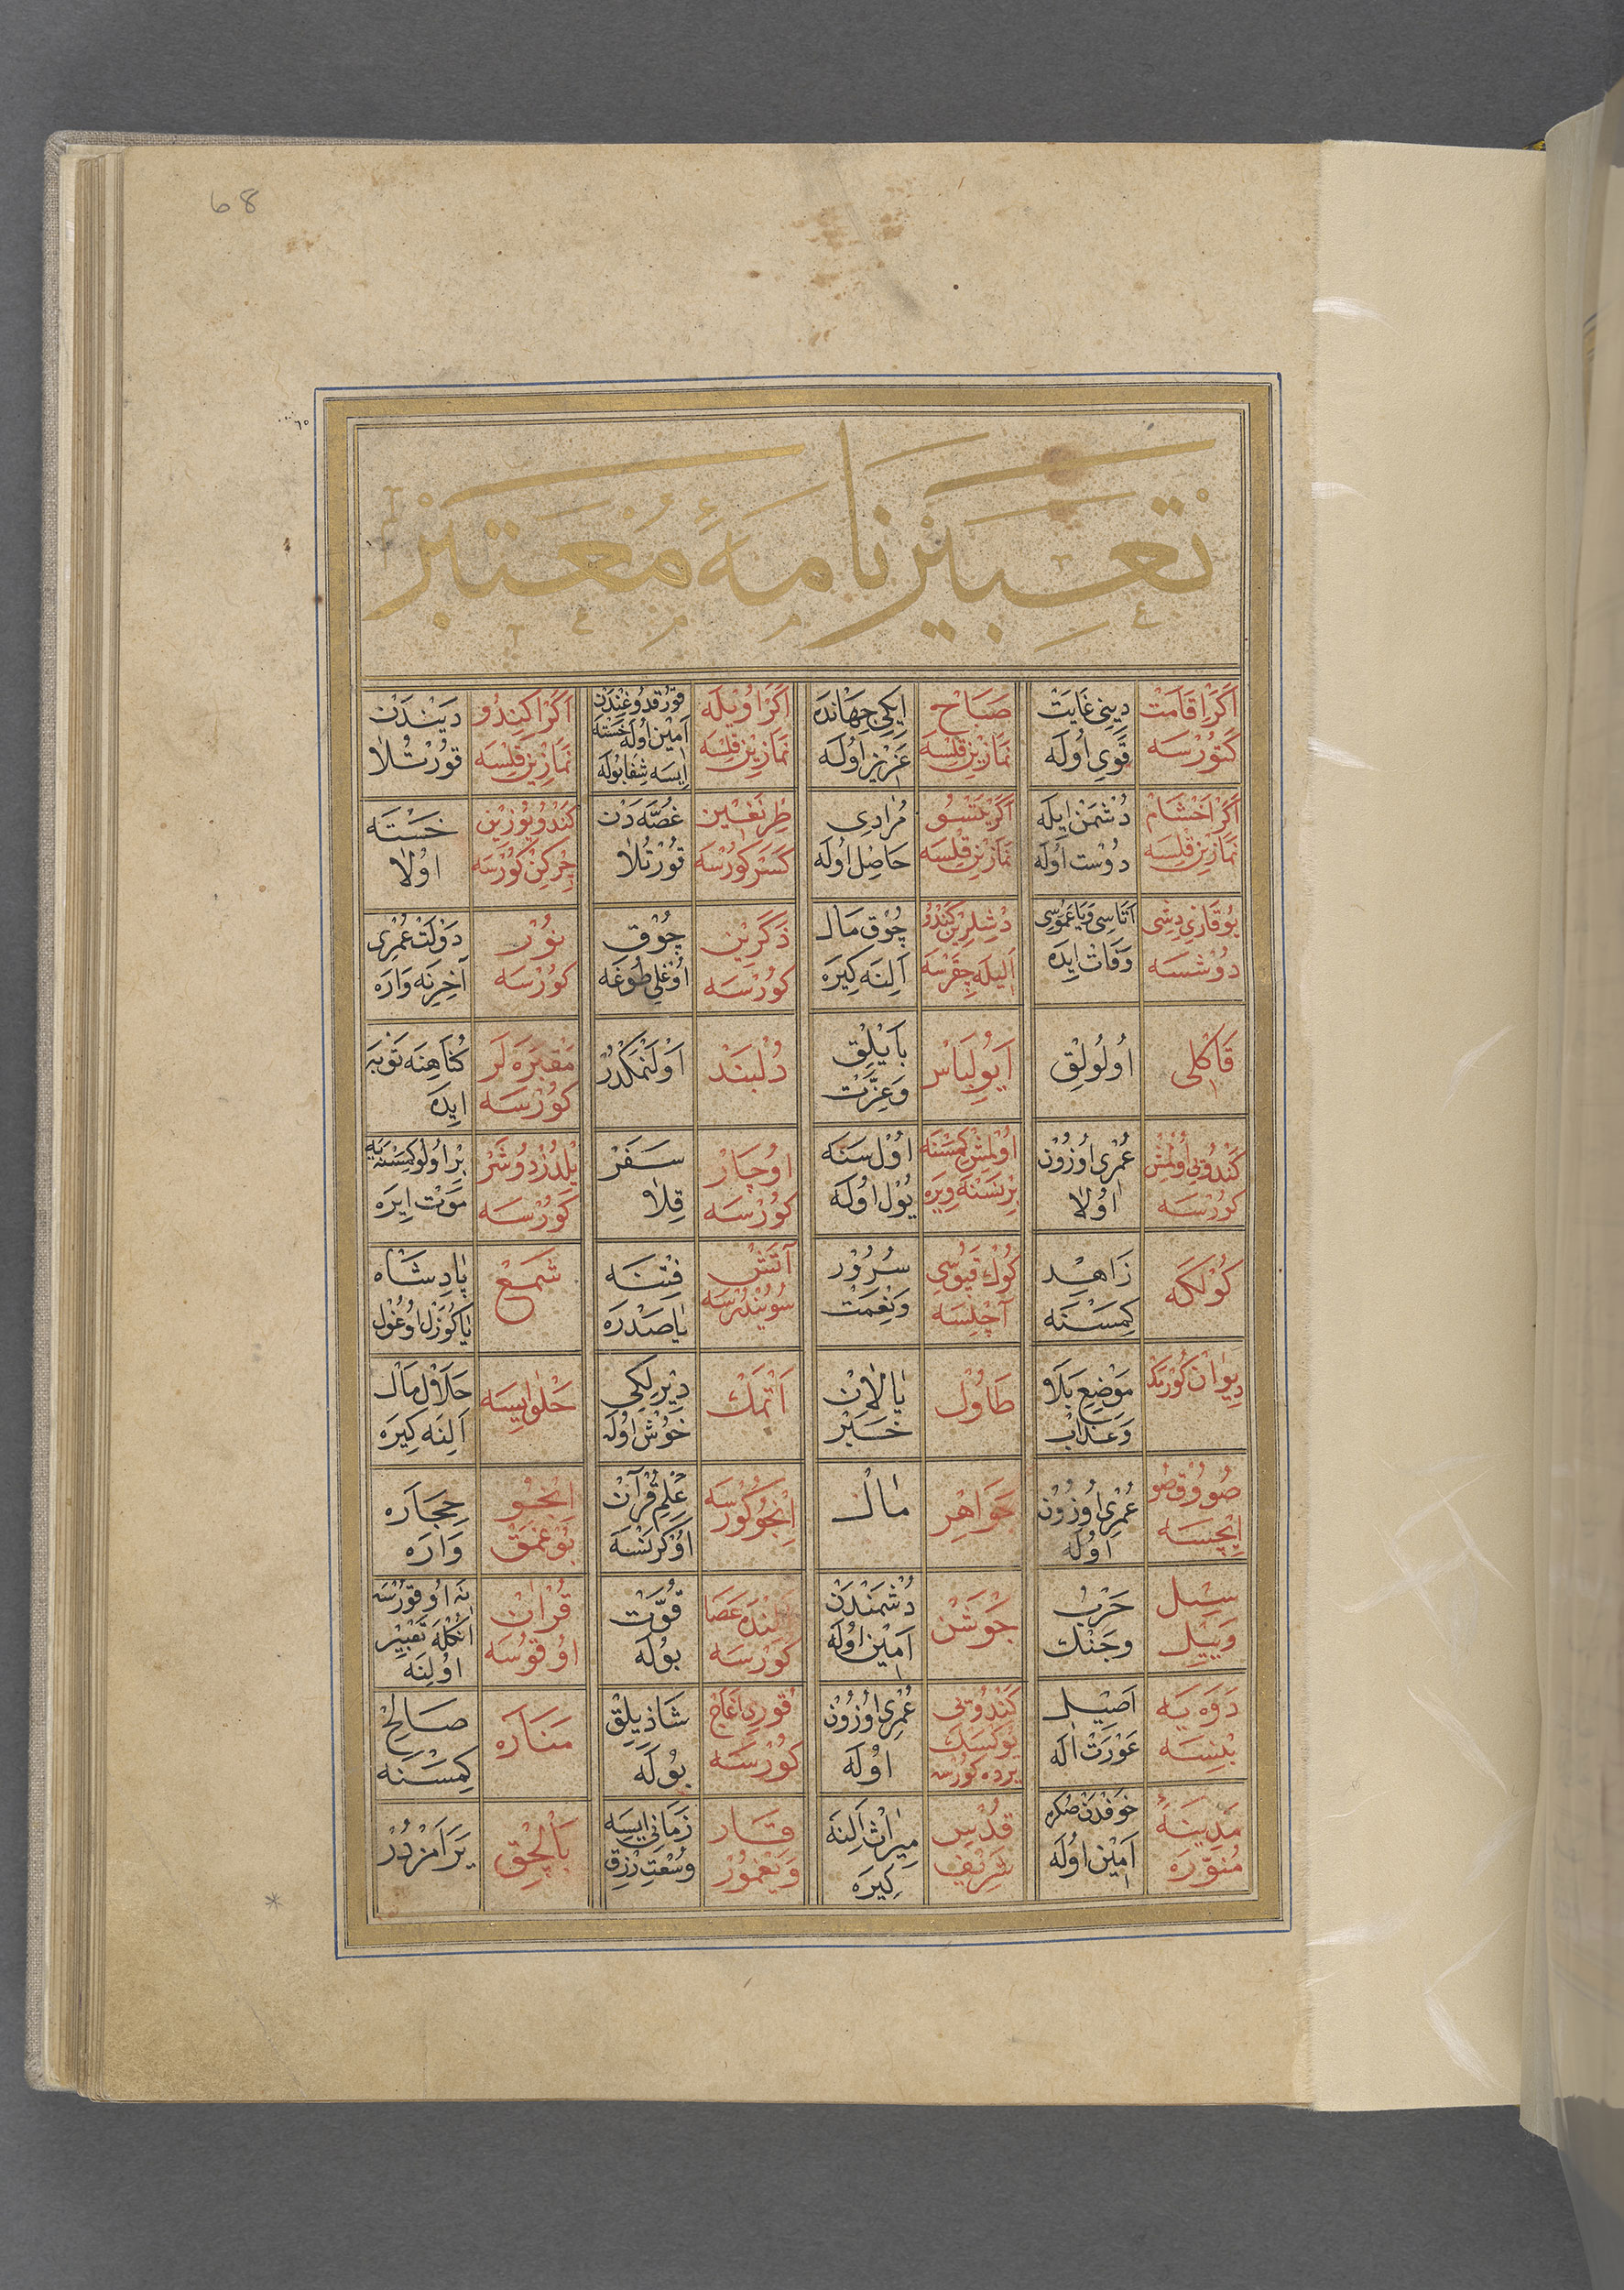 68
تَعْبِيرْ نَامَهٔ مُعْتَبَرْ
اَكَرْ اِقَامَتْ
كَتُورْسَه
دِينِى غَايَتْ
قَوِى اُولَه
صَبَاحْ
نَمَازِينْ قِلْسَه
اِيكِى جِهَانْدَه
عَزِيزْ اُولَه
اَكَرْ اُويْلَه
نَمَازِينْ قِلْسَه
قُورْقُدُوغِنْدَنْ
اَمِينْ اُولَه خَسْتَه
اِيسَه شِفَا بُولَه
اَكَرْ اِكِنْدُو
نَمَازِينْ قِلِسَه
دَيْنْدَنْ
قُورْتُلَا
اَكَرْ اَخْشَامْ
نَمَازِينْ قِلْسَه
دُشْمَنْ اِيلَه
دُوسْت اُولَه
اَكَرْ يَتْسُو
نَمَازِينْ قِلْسَه
مُرَادِى
حَاصِلْ اُولَه
طِرْنَغِينْ
كَسَرْ كُورْسَه
غُصَّه دَنْ
قُورْتُلَا
كَنْدُو يُوزِينْ
چِرْكِينْ كُورْسَه
خَسْتَه
اُولَا
يُوقَارِى دِشِى
دُوشْسَه
اَتَاسِى وَيَا عَمُوسِى
وَفَاتْ اِيدَه
دِشْلِرِينْ كَنْدُو
اَلِيلَه چِقَرْسَه
چُوقْ مَالْ
اَلِنَه كِيرَه
ذَكَرِينْ
كُورْسَه
چُوقْ
اُوغْلِى طُوغَه
نُورْ
كُورْسَه
دَوْلَتْ عُمْرِى
آخِرِنَه وَارَه
قَاكْلِى
اُولُولِقْ
اَيُو لِبَاسْ
بَايْلِقْ
وَعِزَّتْ
دُلْبَنْدْ
اَوْلَنْمَكْدُرْ
مَقْبَرَه لَرْ
كُورْسَه
كُنَاهِنَه تَوْبَه
اِيدَه
كَنْدُوىِ اُولْمِشْ
كُورْسَه
عُمْرِى اُوزُونْ
اُولَا
اُولْمِشْ كِمْسَنَه
بِرْنَسْنَه وِيرَه
اُولْ سَنَه
يُولْ اُولَه
اُوچَارْ
كُورْسَه
سَفَرْ
قِلَا
يِلْدُزْ دُوشَرْ
كُورْسَه
بِرْ اُولُو كِمْسَنَه يَه
مَوْتْ اِيرَه
كُولْكَه
زَاهِدْ
كِمْسَنَه
كُوكْ قَپُوسِى
آچِلْسَه
سُرُورْ
وَنِعْمَتْ
آتَشْ
سُويُنْدُرْسَه
فِتْنَه
يَا صَدْرَه
شَمْعْ
پَادِشَاه
يَا كُوزَلْ اُوغُولْ
دِيوَانْ كُورْمَكْ
مَوْضِعِ بَلَا
وَعَذَابْ
طَاوُلْ
يَالَانْ
خَبَرْ
اَتْمَكْ
دِيرْلِكِى
خُوشْ اُولَه
حَلْوَا يِيسَه
حَلَالْ مَالْ
اَلِنَه كِيرَه
صُووُقْ صُو
اِيچْسَه
عُمْرِى اُوزُونْ
اُولَه
جَوَاهِرْ
مَالْ
اِنْجُو كُورْسَه
عِلْمِ قُرْآنْ
اُوكْرَنْسَه
اِنْجُو
بُوغْمَقْ
حِجَازَه
وَارَه
سَيْلْ
وَيَيْلْ
حَرْبْ
وَجَنْكْ
جَوْشَنْ
دُشْمَنْدَنْ
اَمِينْ اُولَه
اَلِنْدَه عَصَا
كُورْسَه
قُوَّتْ
بُولَه
قُرْآنْ
اُوقُوسَه
نَه اُوقُورْسَه
اَنْكْلَه تَعْبِيرْ
اُولِنَه
دَوَه يَه
بِنْسَه
اَصِيلْ
عَوْرَتْ آلَه
كَنْدُويِى
يُوكْسَكْ
يِرْدَه كُورْسَه
عُمْرِى اُوزُونْ
اُولَه
قُورِى اَغَاجْ
كُورْسَه
شَاذِيلِقْ
بُولَه
مَنَارَه
صَالِحْ
كِمْسَنَه
مَدِينَهٔ
مُنَوَّرَه
خَوْفْدَنْ صُكْرَه
اَمِينْ اُولَه
قُدْسِ
شَرِيفْ
مِيرَاثْ اَلِنَه
كِيرَه
قَارْ
وَيَغْمُورْ
زَمَانِى اِيسَه
وُسْعَتِ رِزْقْ
بَالْچِقْ
يَرَامَزْدُرْ